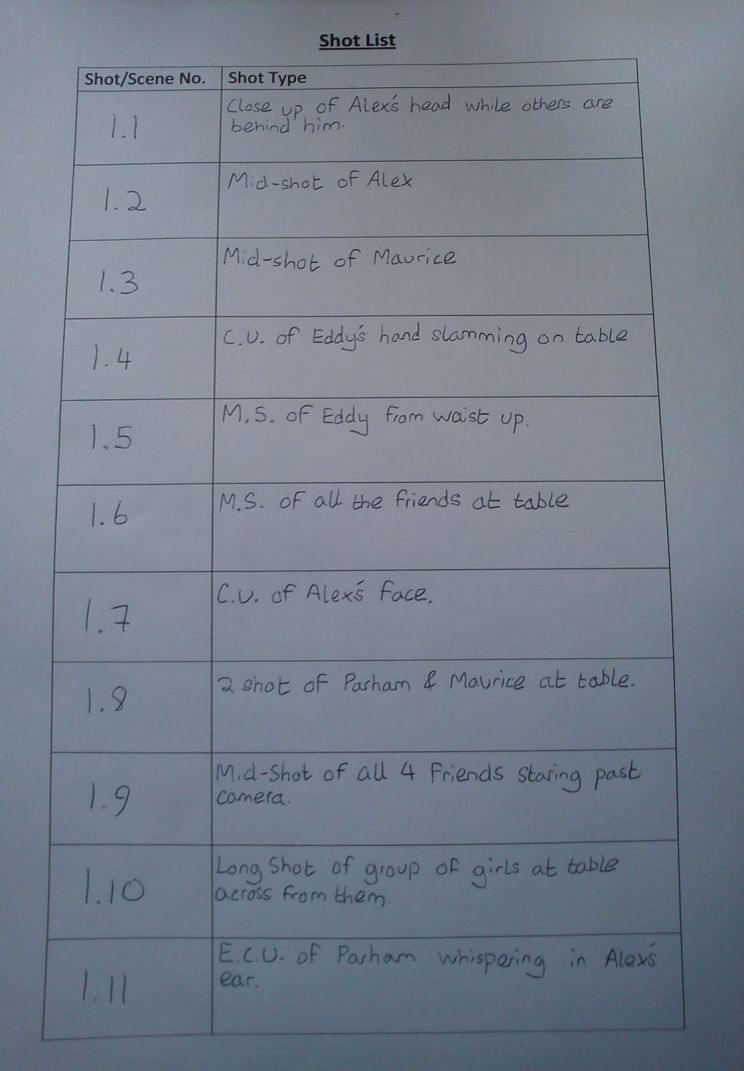 Shot List
Shot/Scene No. Shot Type
1.1 Close up of Alex's head while others are
behind him.
1.2 Mid-shot of Alex
1.3 Mid-shot of Maurice
1.4 C.U. of Eddy's hand slamming on table
1.5 M.S. of Eddy from waist up.
1.6 M.S. of all the friends at table
1.7 C.U. of Alex's face.
1.8 2 shot of Parham & Maurice at table.
1.9 Mid-Shot of all 4 Friends staring past
camera.
1.10 Long Shot of group of girls at table
across from them.
1.11 E.C.U. of Parham whispering in Alex's
ear.